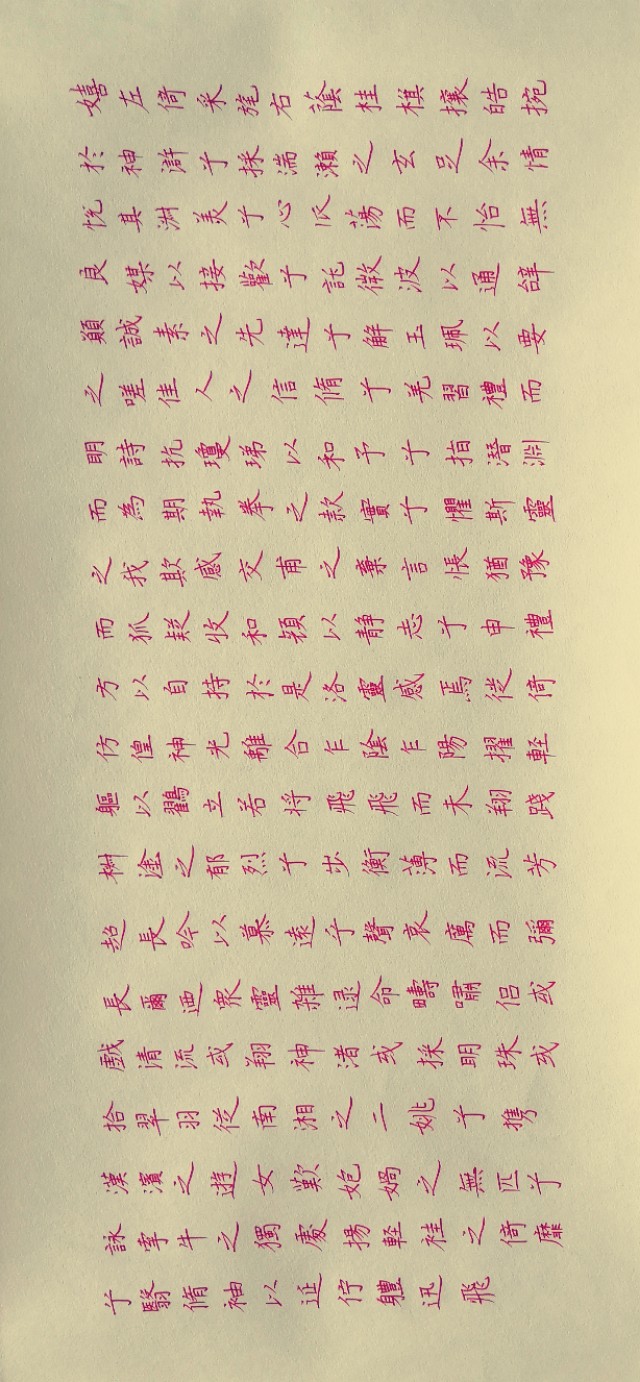 嬉左倚采旄右蔭桂棋攘皓捥
於神滸兮採湍瀨之玄芝余情
悅其淑美兮心振蕩而不怡無
良媒以接歡兮託微波以通辭
願誠素之先達兮解玉珮以要
之嗟佳人之信脩兮羌習禮而
明詩抗瓊珶以和予兮指潛淵
而為期執拳之款實兮懼斯靈
之我欺感交甫之棄言悵猶豫
而狐疑收和顏以静志兮申禮
方以自持於是洛靈感焉徙倚
仿偟神光離合乍陰乍陽擢軽
軀以鶴立若将飛飛而未翔踐
椒塗之郁烈兮步衡薄而流芳
超長吟以慕遠兮聲哀厲而彌
長爾迺衆靈雜遝命疇嘯侶或
戲清流或翔神渚或採明珠或
拾翠羽従南湘之二姚兮携
漢濱之遊女歎匏媧之無匹兮
詠牽牛之獨處揚軽袿之倚靡
兮翳脩袖以延佇體迅飛